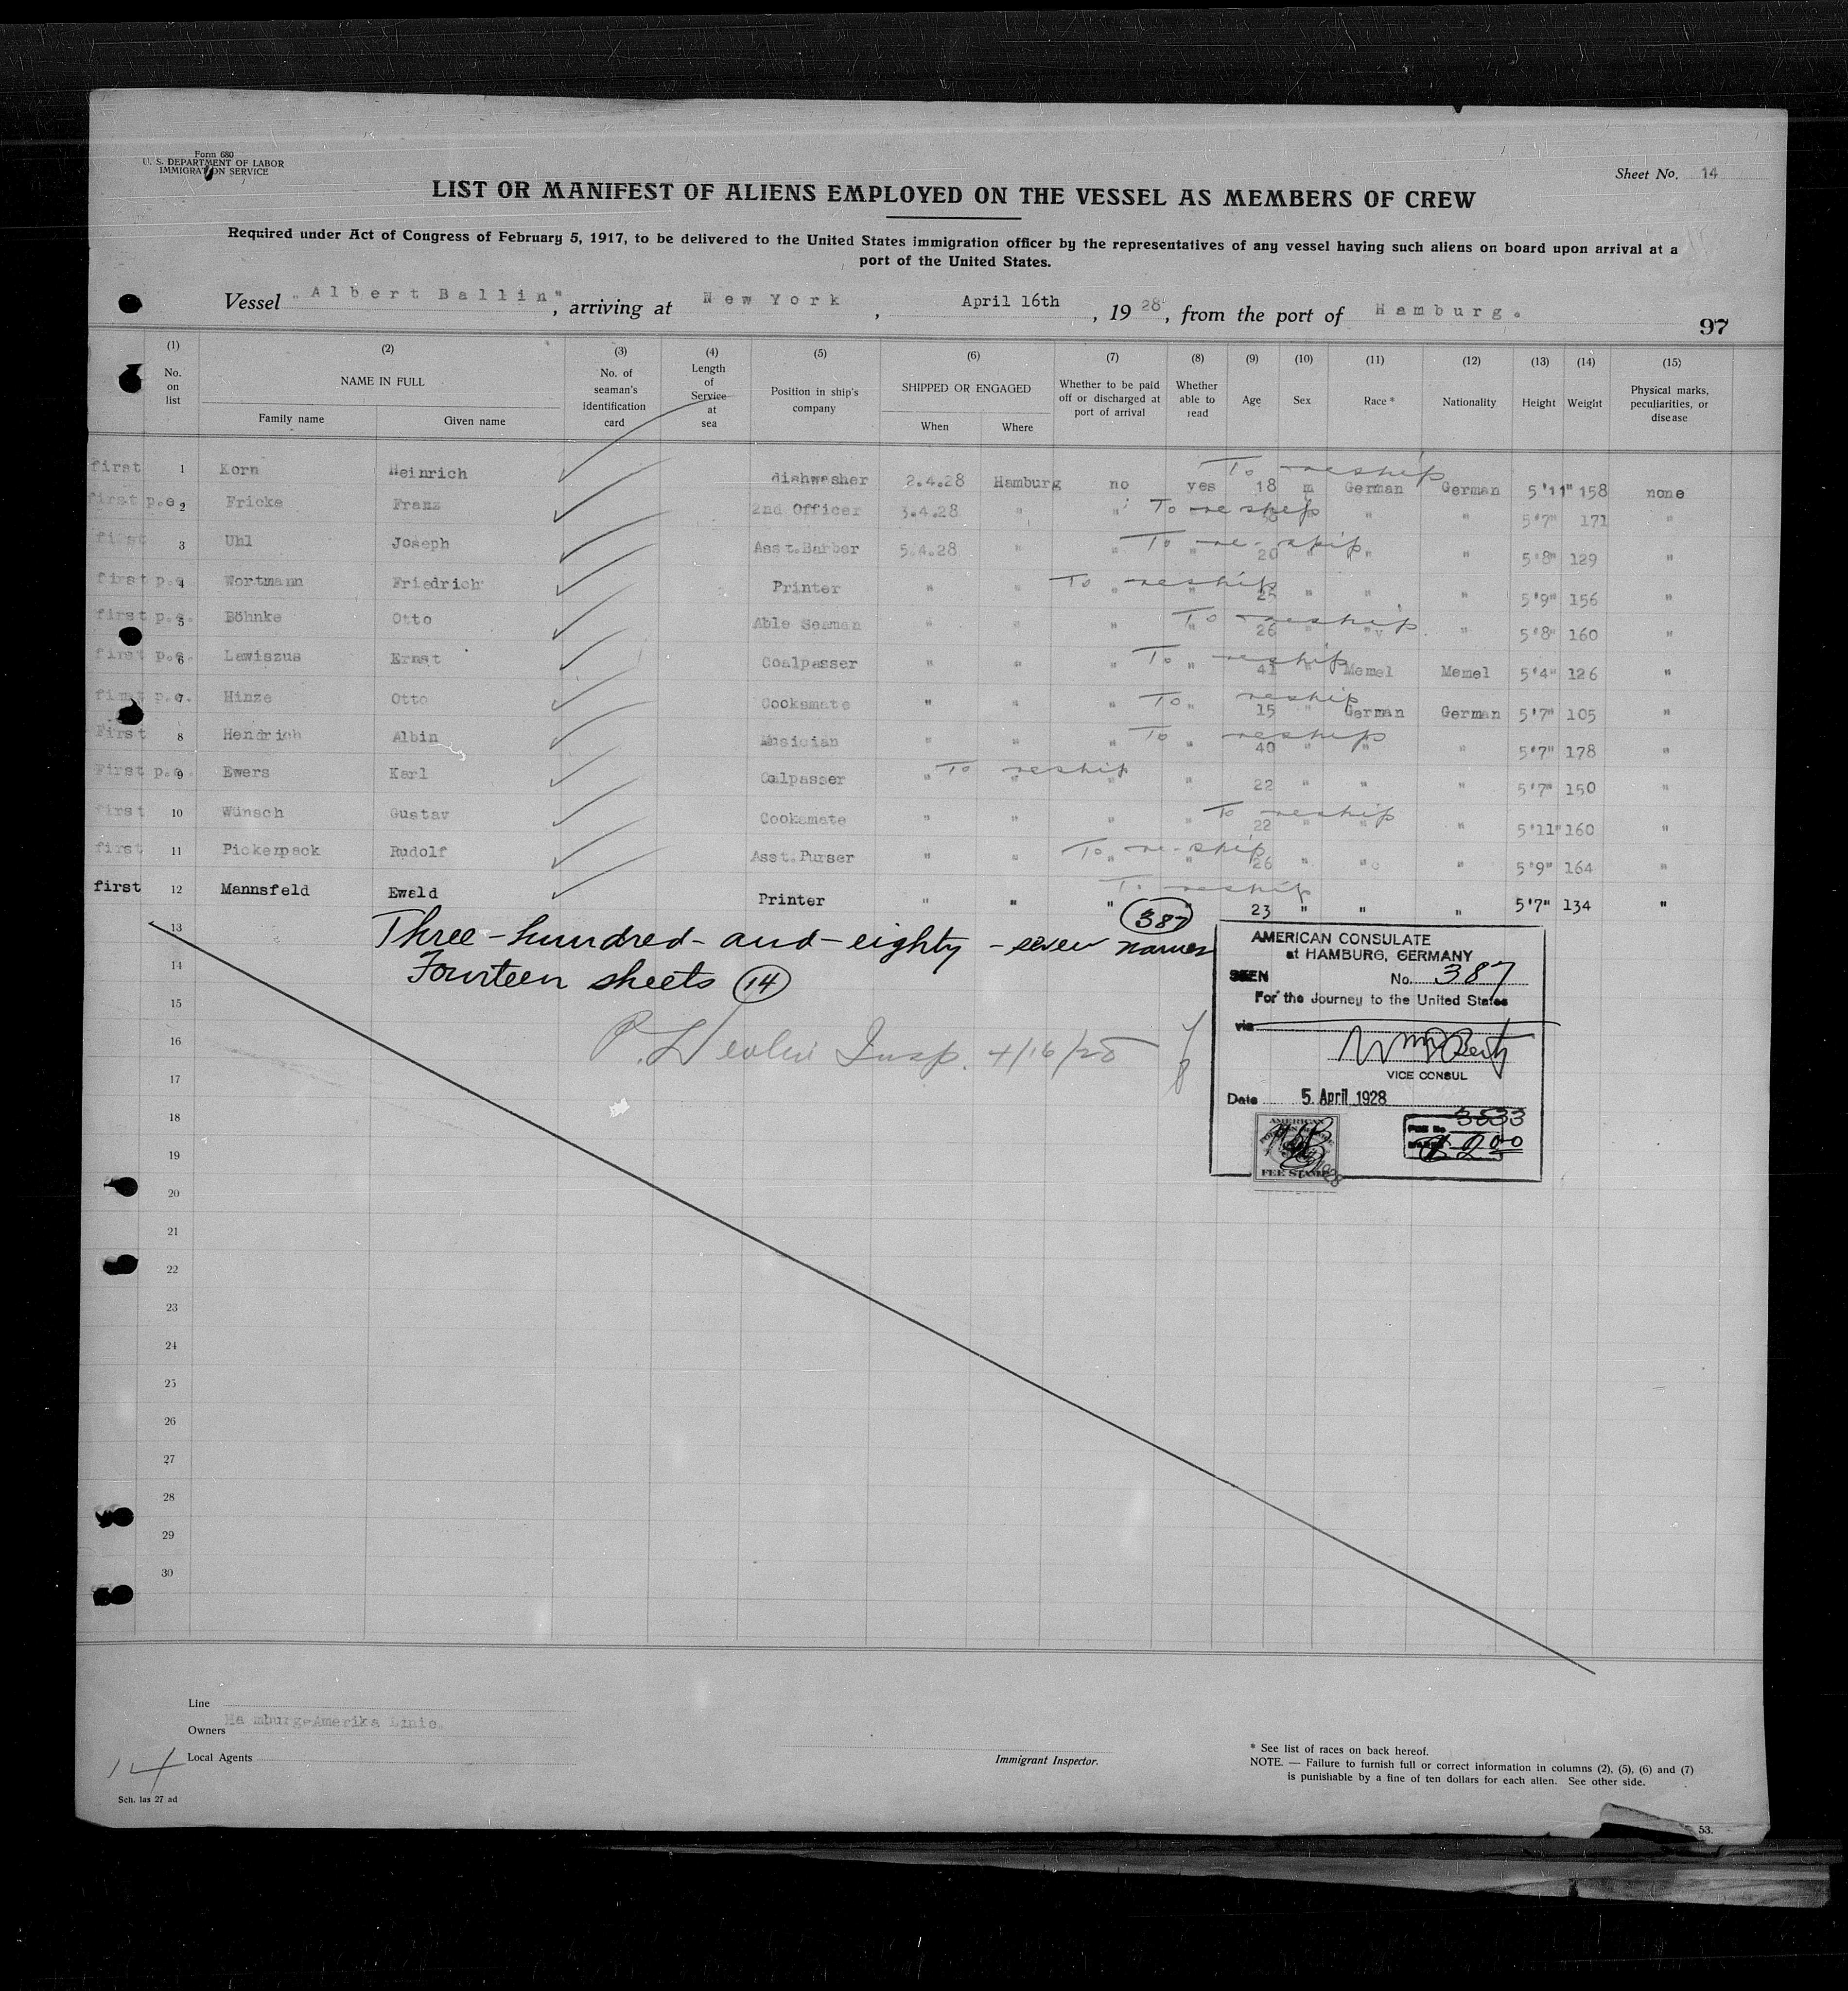 Form 680
U. S. DEPARTMENT OF LABOR
IMMIGRATION SERVICE
Sheet No. 14
LIST OR MANIFEST OF ALIENS EMPLOYED ON THE VESSEL AS MEMBERS OF CREW
Required under Act of Congress of February 5, 1917, to be delivered to the United States immigration officer by the representatives of any vessel having such aliens on board upon arrival at a
port of the United States.
Vessel "Albert Ballin", arriving at New York, April 16th, 1928, from the port of Hamburg.
97
(1) (2) (3) (4) (5) (6) (7) (8) (9) (10) (11) (12) (13) (14) (15)
No. on list NAME IN FULL Family name Given name No. of seaman's identification card Length of Service at sea Position in ship's company SHIPPED OR ENGAGED When Where Whether to be paid off or discharged at port of arrival Whether able to read Age Sex Race* Nationality Height Weight Physical marks, peculiarities, or disease
first 1 Korn Heinrich dishwasher 2.4.28 Hamburg no yes 18 m German German 5'11" 158 none To reship
first p.e. 2 Fricke Franz 2nd Officer 3.4.28 " " " " " " 5'7" 171 " To reship
first 3 Uhl Joseph Asst.Barber 5.4.28 " " " 20 " " " 5'8" 129 " To re-ship
first p.e. 4 Wortmann Friedrich Printer " " " " 25 " " " 5'9" 156 " To reship
first p.e. 5 Böhnke Otto Able Seaman " " " " 26 " " " 5'8" 160 " To reship
first p.e. 6 Lawiszus Ernst Coalpasser " " " " 41 " Memel Memel 5'4" 126 " To reship
first p.e. 7 Hinze Otto Cooksmate " " " " 15 " German German 5'7" 105 " To reship
First 8 Hendrich Albin Musician " " " " 40 " " " 5'7" 178 " To reship
First p.e. 9 Ewers Karl Coalpasser " " " 22 " " " 5'7" 150 " To reship
first 10 Wünsch Gustav Cooksmate " " " 22 " " " 5'11" 160 " To reship
first 11 Pickenpack Rudolf Asst.Purser " " " " 26 " " " 5'9" 164 " To re-ship
first 12 Mannsfeld Ewald Printer " " " " 23 " " " 5'7" 134 " To reship
13
Three-hundred-and-eighty-seven names 387
14
Fourteen sheets 14
15
16
Insp. 4/16/28
17
18
19
20
21
22
23
24
25
26
27
28
29
30
AMERICAN CONSULATE
at HAMBURG, GERMANY
SEEN No. 387
For the Journey to the United States
via
VICE CONSUL
Date 5. April 1928
AMERICAN
FEE STAMP
3533
2.00
Line
Owners Hamburg-Amerika Linie.
Local Agents
14
Sch. las 27 ad
Immigrant Inspector.
* See list of races on back hereof.
NOTE. — Failure to furnish full or correct information in columns (2), (5), (6) and (7)
is punishable by a fine of ten dollars for each alien. See other side.
53.